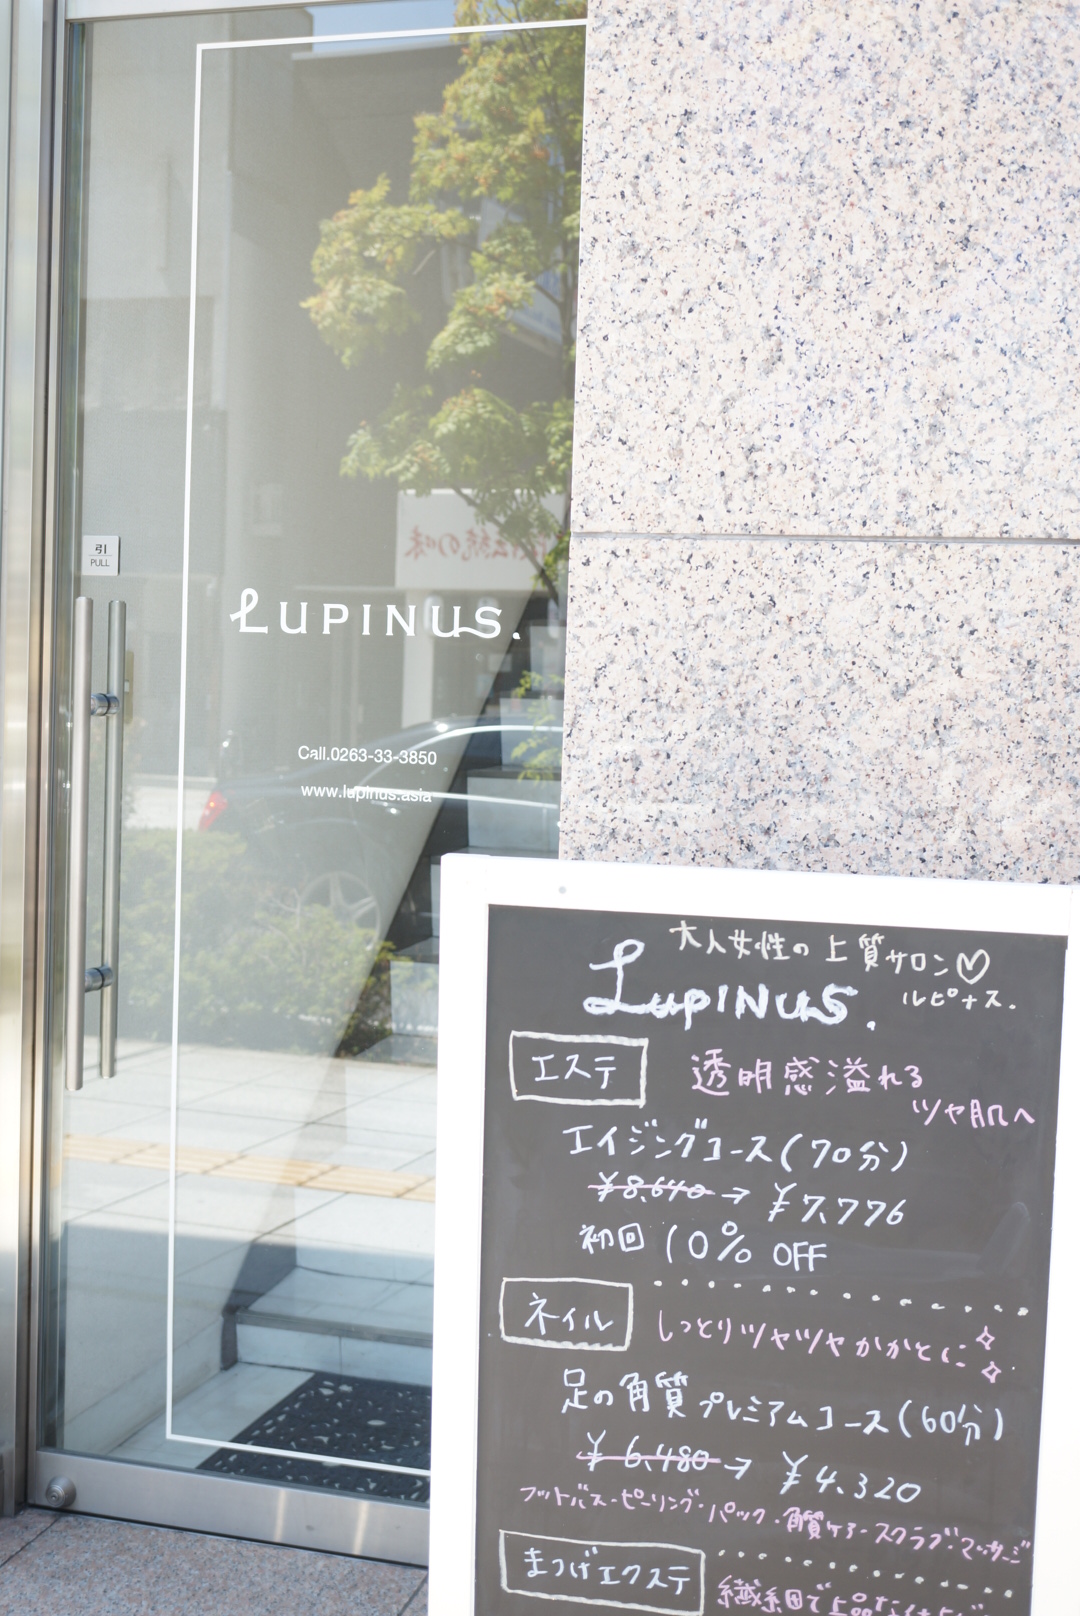 引
PULL
LUPINUS.
Call.0263-33-3850
www.lupinus.asia
大人女性の上質サロン♡
LUPINUS.
ルピナス.
エステ
透明感溢れる
ツヤ肌へ
エイジングコース(70分)
¥8,640→¥7,776
初回10% OFF
ネイル
しっとりツヤツヤかかとに
足の角質プレミアムコース(60分)
¥6,480→¥4,320
フットバス・ピーリング・パック・角質ケア・スクラブ・マッサージ
まつげエクステ
繊細で上品な